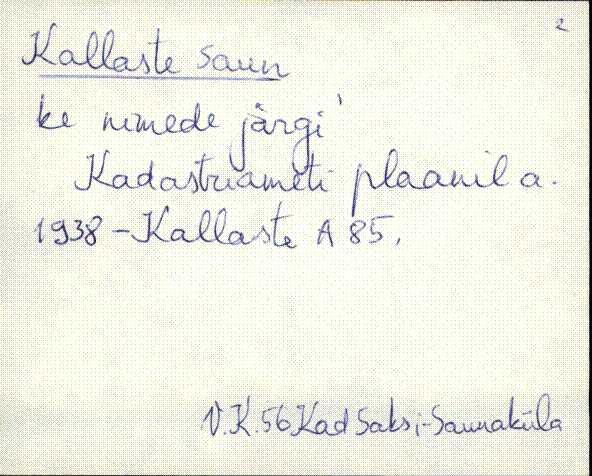 2
Kallaste saun
ke nimede järgi
Kadastriameti plaanil a.
1938 - Kallaste A 85.
V.K. 56 Kad Saksi-Saunaküla